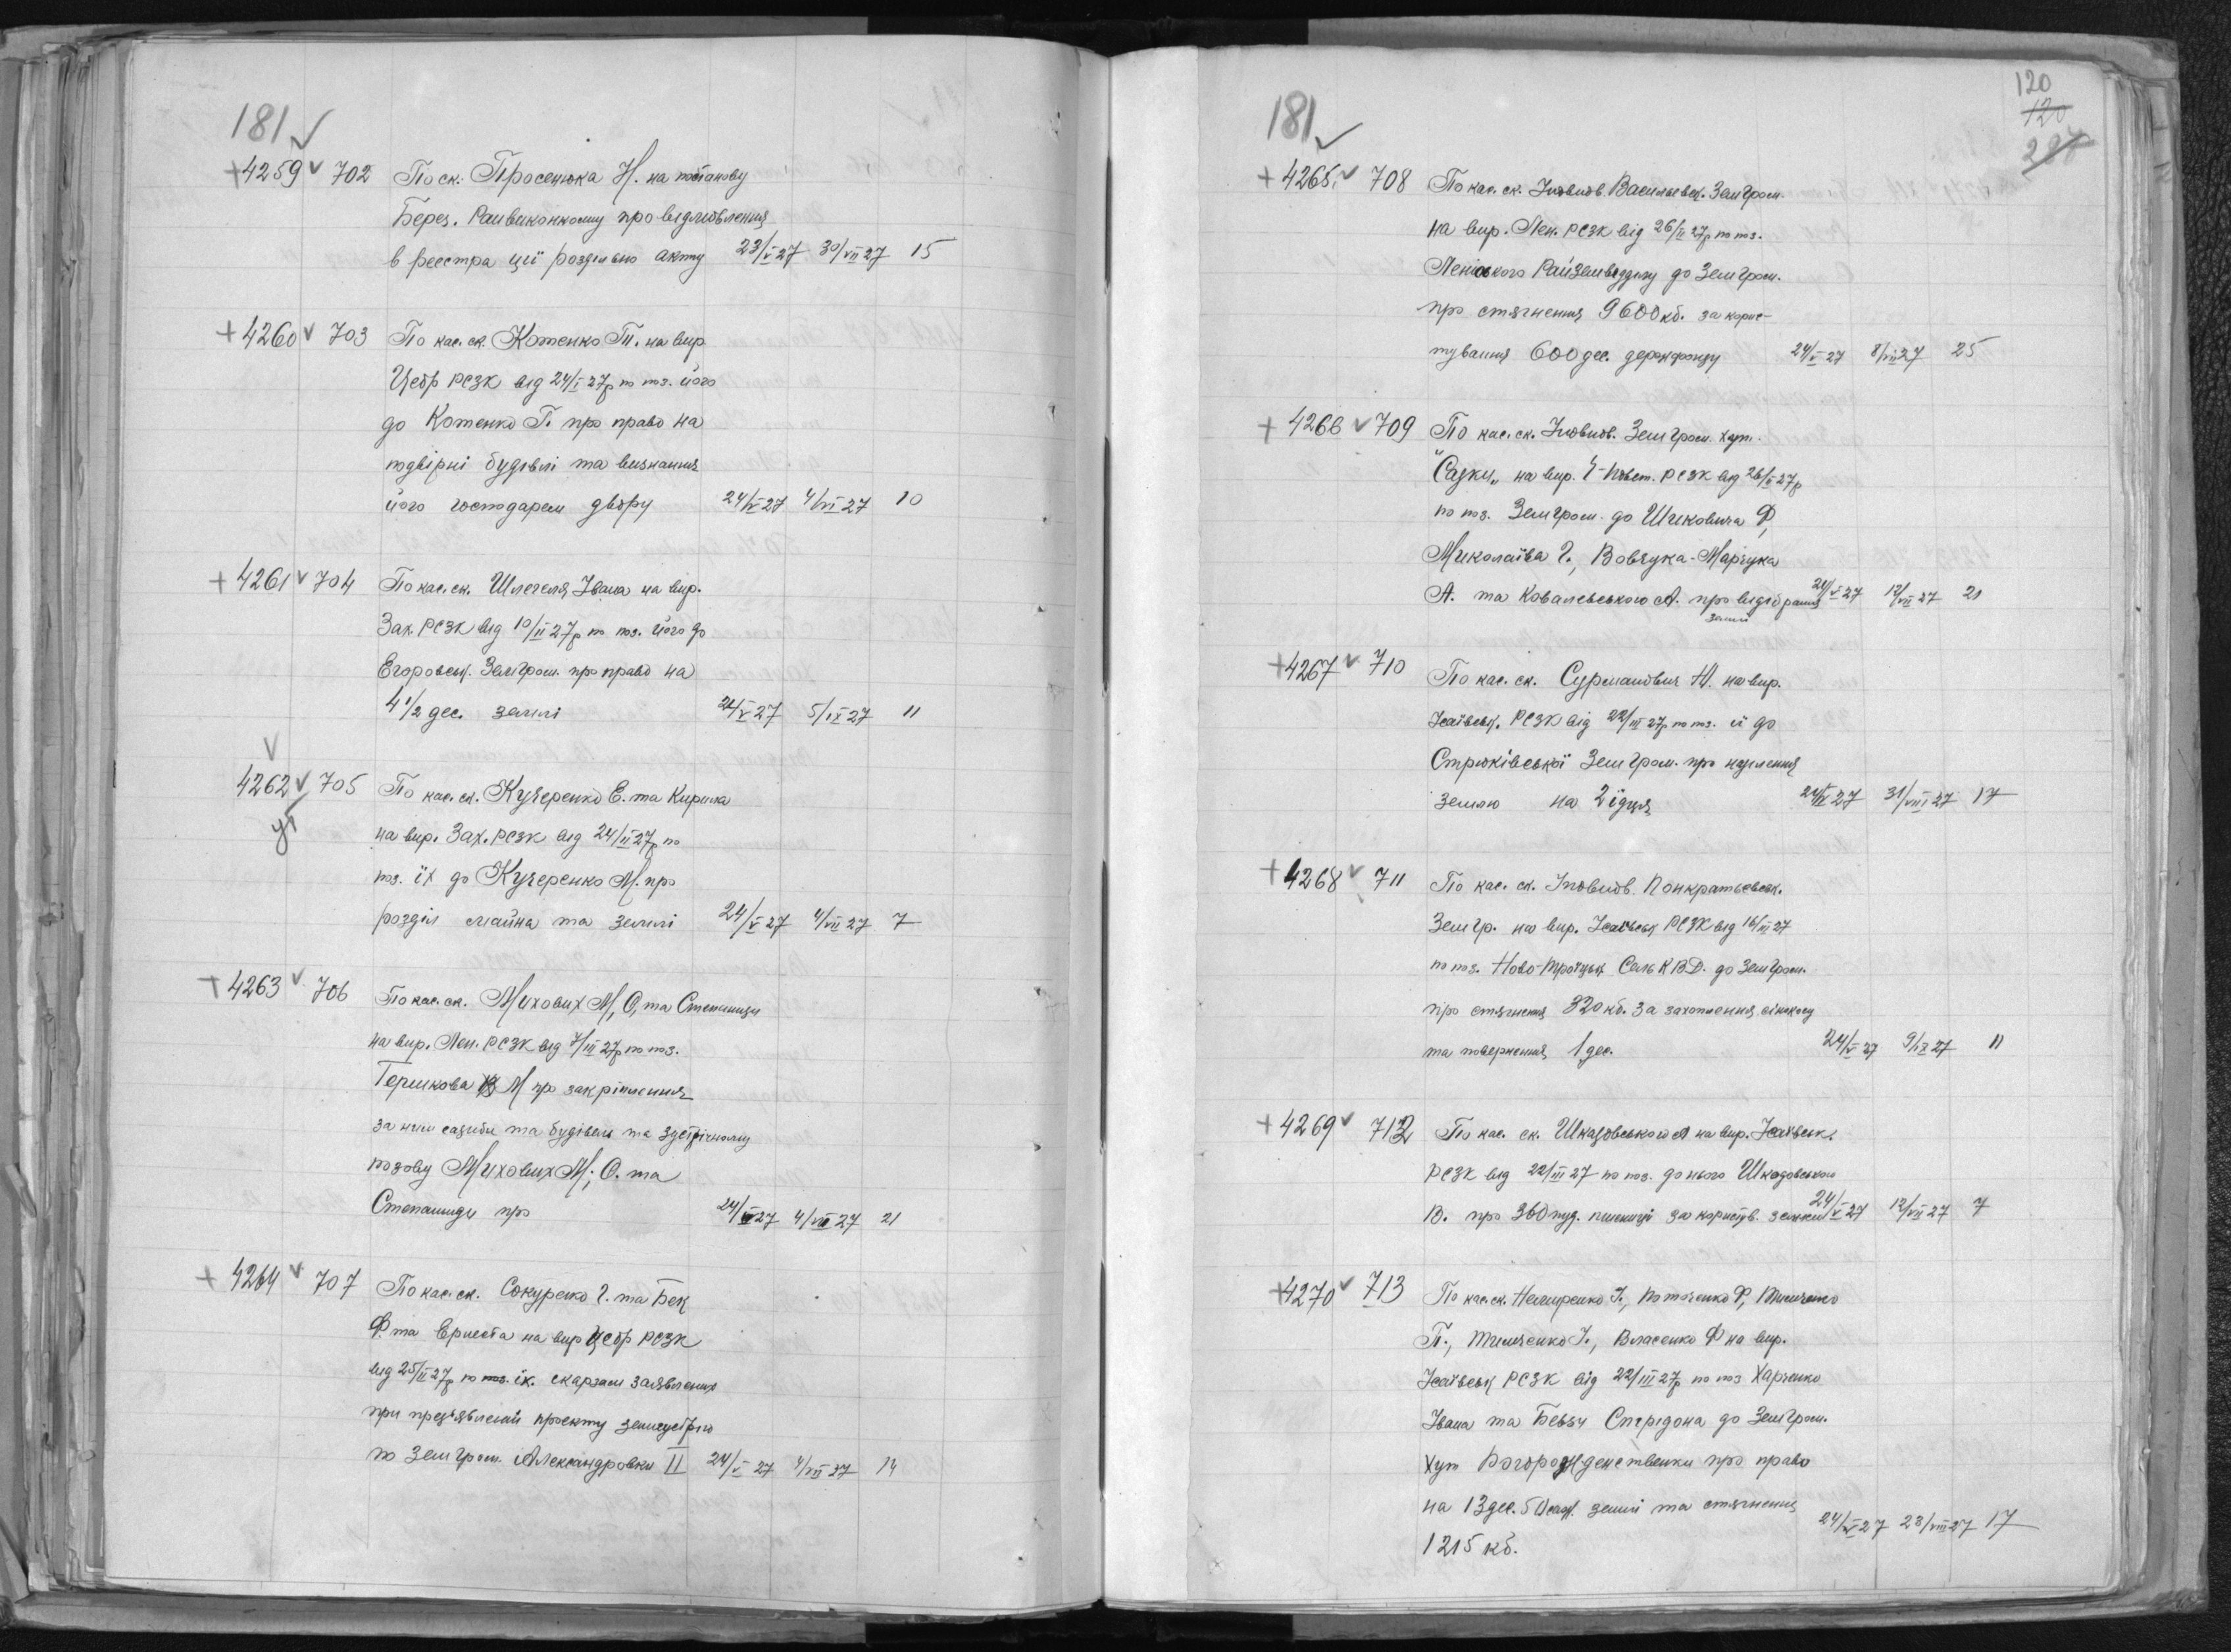 181 ✓
+ 4259 ✓ 702 По ск. Просенюка Н. на постанову
Берез. Райвиконкому про відмовлення
в реєстра ції роздільно акту 23/V 27 30/VII 27 15
+ 4260 ✓ 703 По кас. ск. Котенко П. на вир
Цебр РСЗК від 24/I 27р по поз. його
до Котенко Г. про право на
подвірні будівлі та визнання
його господарем двору 24/V 27 4/VI 27 10
+ 4261 ✓ 704 По кас. ск. Шлегеля Івана на вир.
Зах. РСЗК від 10/II 27р по поз. його до
Егоровськ. Земгром. про право на
4 1/2 дес. землі 24/V 27 5/IX 27 11
4262 ✓ 705 По кас. ск. Кучеренко Е. та Кирила
на вир. Зах. РСЗК від 24/II 27р по
поз. їх до Кучеренко М. про
розділ майна та землі 24/V 27 4/VII 27 7
+ 4263 ✓ 706 По кас. ск. Михових М, О, та Степаниди
на вир. Лен. РСЗК від 7/III 27р по поз.
Гершкова М про закріплення
за ним садиби та будівель та зустрічному
позову Михових М; О. та
Степаниди про 24/V 27 4/VII 27 21
+ 4264 ✓ 707 По кас. ск. Сокуренко Г. та Бек
Ф. та Ернеста на вир Цебр РСЗК
від 25/II 27р по їх. скаргам заявлених
при предъявленій проекту землеустрою
по Земгром. Александровки II 24/V 27 4/VII 27 14
120
120
181 ✓
+ 4265 ✓ 708 По кас. ск. Уповнов. Васильевск. Земгром.
на вир. Лен. РСЗК від 26/II 27р по поз.
Ленінського Райземвідділу до Земгром.
про стягнення 9600 кб. за корис-
тування 600 дес. держфонду 24/V 27 8/VII 27 25
+ 4266 ✓ 709 По кас. ск. Уповнов. Земгром. хут.
"Садки" на вир. РСЗК від 26/II 27р
по поз. Земгром. до Шиковича Ф,
Миколаїва Г., Вовчука-Марчука
А. та Ковалевського А. про відібрання 24/V 27 12/VII 27 21
землі
+ 4267 ✓ 710 По кас. ск. Сурманович Н. на вир.
Ісаївськ. РСЗК від 22/III 27р по поз. її до
Стрюківської Земгром. про наділення
землею на 2 їдця 24/V 27 31/VIII 27 17
+ 4268 ✓ 711 По кас. ск. Уповнов. Понкратьевск.
Земгр. на вир. Ісаївськ РСЗК від 16/III 27
по поз. Ново-Троїцьк СельКВД. до Земгром.
про стягнення 320 кб. за захоплення сінокосу
та повернення 1 дес. 24/V 27 9/IX 27 11
+ 4269 ✓ 712 По кас. ск. Шкадовського А на вир. Ісаївськ.
РСЗК від 22/III 27 по поз. до нього Шкадовського
В. про 360 пуд. пшениці за користув. землею 24/V 27 12/VII 27 7
+ 4270 ✓ 713 По кас. ск. Немиренко І., Поточенко Ф,
П., Тимченко І., Власенко Ф на вир.
Ісаївськ РСЗК від 22/III 27р по поз Харченко
Івана та Бевзи Спірідона до Земгром.
Хут Богорождественки про право
на 13 дес. 50 саж. землі та стягнення
1215 кб. 24/V 27 23/VIII 27 17